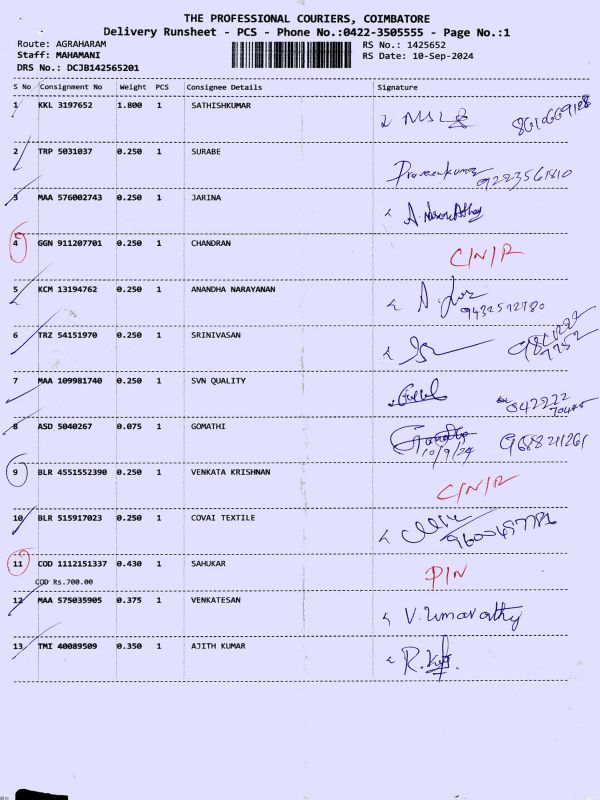 THE PROFESSIONAL COURIERS, COIMBATORE
Delivery Runsheet - PCS - Phone No.:0422-3505555 - Page No.:1
Route: AGRAHARAM RS No.: 1425652
Staff: MAHAMANI RS Date: 10-Sep-2024
DRS No.: DCJB142565201
S No Consignment No Weight PCS Consignee Details Signature
1 KKL 3197652 1.800 1 SATHISHKUMAR
2 TRP 5031037 0.250 1 SURABE Praveenkumar
3 MAA 576002743 0.250 1 JARINA
4 GGN 911207701 0.250 1 CHANDRAN C/N/R
5 KCM 13194762 0.250 1 ANANDHA NARAYANAN
6 TRZ 54151970 0.250 1 SRINIVASAN
7 MAA 109981740 0.250 1 SVN QUALITY
8 ASD 5040267 0.075 1 GOMATHI
10/9/24
9 BLR 4551552390 0.250 1 VENKATA KRISHNAN C/N/R
10 BLR 515917023 0.250 1 COVAI TEXTILE
11 COD 1112151337 0.430 1 SAHUKAR P/N
COD Rs.700.00
12 MAA 575035905 0.375 1 VENKATESAN V. Umavathy
13 TMI 40089509 0.350 1 AJITH KUMAR